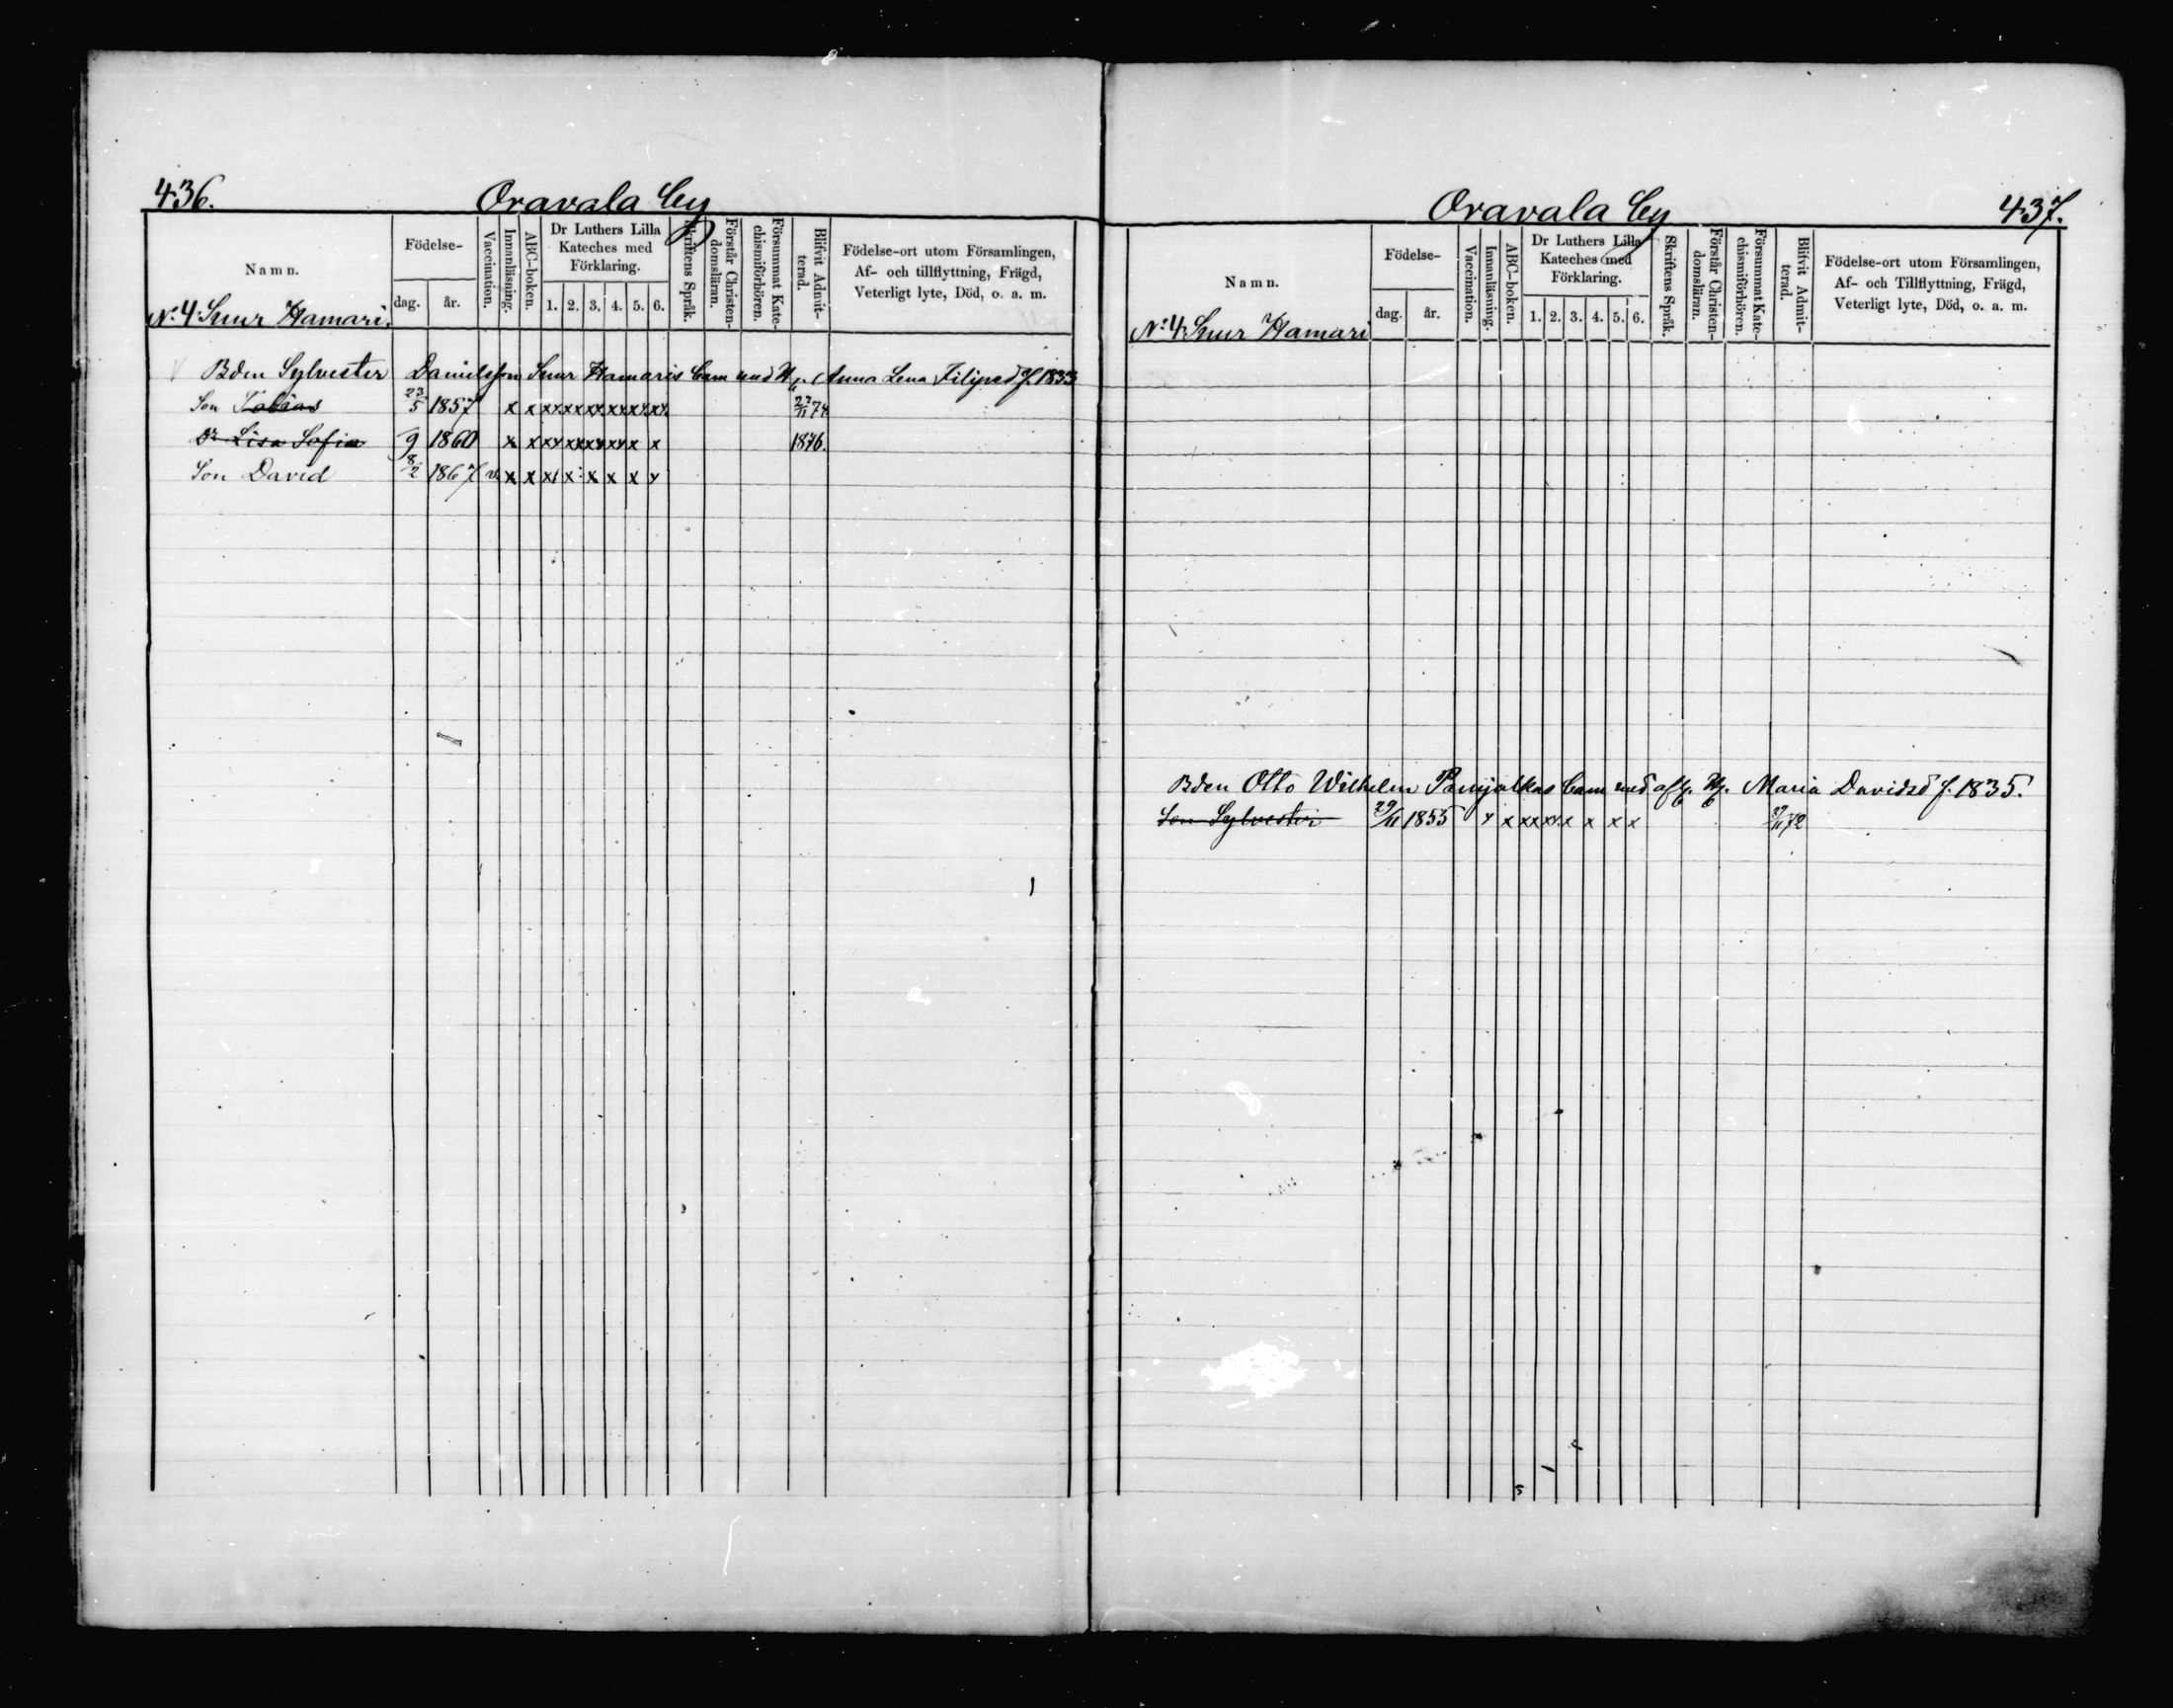 436.
Oravala by
Namn.
Födelse-
dag.
år.
Vaccination.
Innanläsning.
ABC-boken.
Dr Luthers Lilla
Kateches med
Förklaring.
1. 2. 3. 4. 5. 6.
Skriftens Språk.
Förstår Christen-
domsläran.
Försummat Kate-
chismiförhören.
Blifvit Admit-
terad.
Födelse-ort utom Församlingen,
Af- och tillflyttning, Frägd,
Veterligt lyte, Död, o. a. m.
N:4 Suur Hamari.
Bden Sylvester Danielsson Suur Hamaris barn med H. Anna Lena Filipsd f. 1833
Son Tobias 23/5 1857 x x xx xx xx xx xx xx 27/11 74
Dr Lisa Sofia 9 1860 x x xx xx xx xx x x 1876.
Son David 8/2 1867 v. x x x x x x x x
Oravala by
437.
Namn.
Födelse-
dag.
år.
Vaccination.
Innanläsning.
ABC-boken.
Dr Luthers Lilla
Kateches med
Förklaring.
1. 2. 3. 4. 5. 6.
Skriftens Språk.
Förstår Christen-
domsläran.
Försummat Kate-
chismiförhören.
Blifvit Admit-
terad.
Födelse-ort utom Församlingen,
Af- och Tillflyttning, Frägd,
Veterligt lyte, Död, o. a. m.
N:4 Suur Hamari
Bden Otto Wilhelm barn med H. Maria Davidsd f. 1835.
Son Sylvester 29/11 1855 x x xx xx x x x x 72